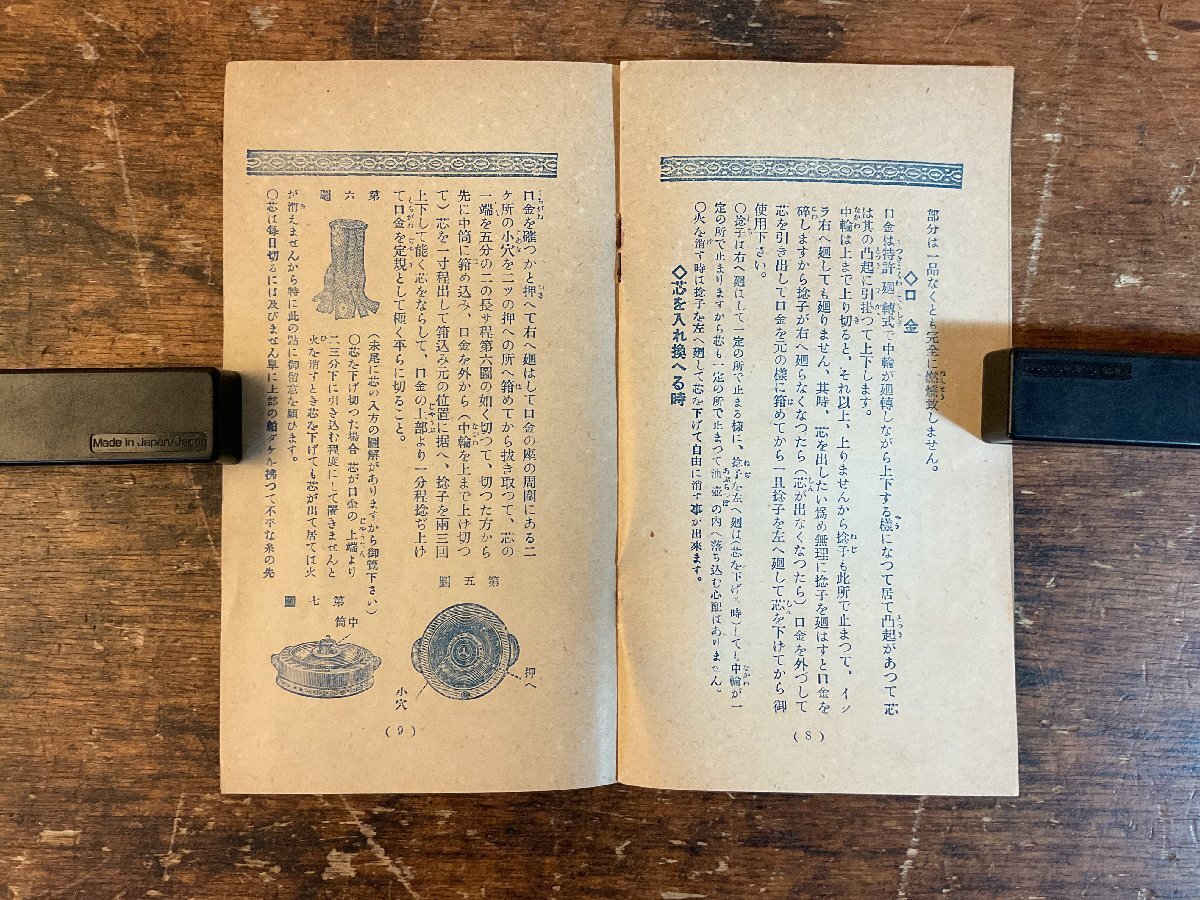 部分は一品なくとも完全に燃燒致しません。
◇口金
口金は特許廻轉式で中輪が廻轉しながら上下する樣になつて居て凸起があつて芯
は其の凸起に引掛つて上下します。
中輪は上まで上り切ると、それ以上、上りませんから捻子も此所で止まつて、イク
ラ右へ廻しても廻りません、其時、芯を出したい爲め無理に捻子を廻はすと口金を
碎しますから捻子が右へ廻らなくなつたら(芯が出なくなつたら)口金を外づして
芯を引き出して口金を元の樣に箝めてから一旦捻子を左へ廻して芯を下げてから御
使用下さい。
〇捻子は右へ廻はして一定の所で止まる樣に、捻子を左へ廻は(芯を下げる時)しても中輪が一
定の所で止まりますから芯も一定の所で止まつて油壺の內へ落ち込む心配はありません。
〇火を消す時は捻子を左へ廻して芯を下げて自由に消す事が出來ます。
◇芯を入れ換へる時
(8)
口金を確つかと押へて右へ廻はして口金の座の周圍にある二
ケ所の小穴を二ッの押への所へ箝めてから拔き取つて、芯の
一端を五分の二の長サ程第六圖の如く切つて、切つた方から
先に中筒に箝め込み、口金を外から(中輪を上まで上け切つ
て)芯を一寸程出して箝込み元の位置に据へ、捻子を兩三回
上下して能く芯をならして、口金の上部より一分程捻ぢ上け
て口金を定規として極く平らに切ること。
第五圖
押へ
小穴
第六圖
(末尾に芯の入方の圖解がありますから御覽下さい)
〇芯を下げ切つた場合 芯が口金の上端より
二三分下に引き込む程度にして置きませんと
火を消すとき芯を下げても芯が出て居ては火
が消えませんから特に此の點に御留意を願ひます。
〇芯は每日切るには及びません單に上部の粕ダケを拂つて不平な糸の先
第七圖
中筒
(9)
Made in Japan/Japon